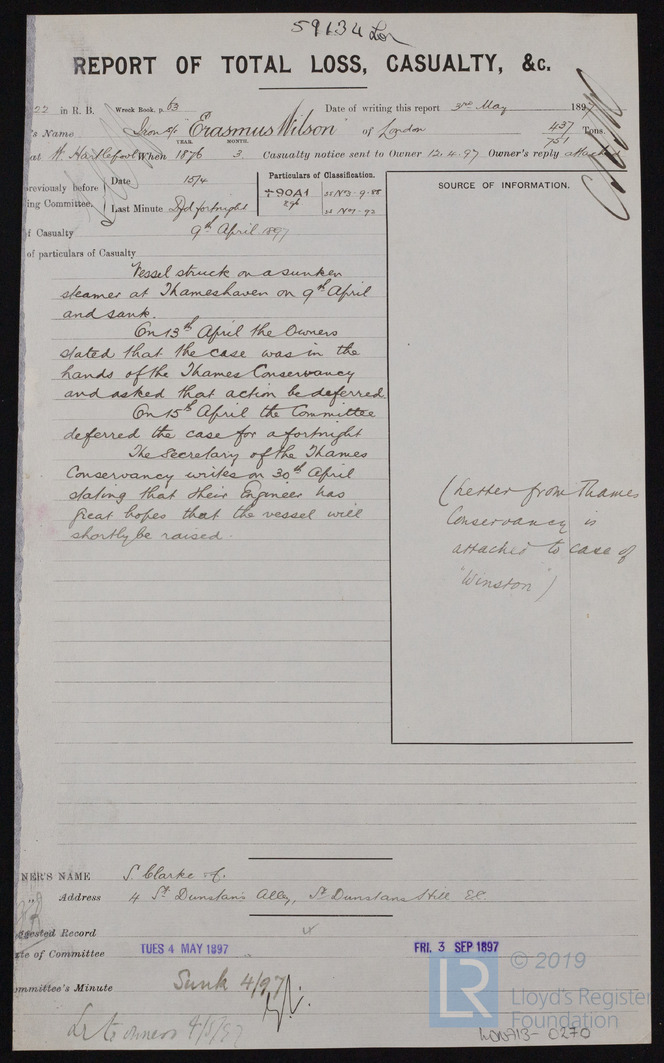 59134 Lon
REPORT OF TOTAL LOSS, CASUALTY, &c.
22 in R. B. Wreck Book, p. 63 Date of writing this report 3rd May 1897
's Name Iron s/s "Erasmus Wilson" of London 437 Tons.
751
YEAR. MONTH.
at W. Hartlepool When 1876 3 Casualty notice sent to Owner 12.4.97 Owner's reply attached
reviously before Date 15/4
ing Committee. Last Minute Dfd fortnight
Particulars of Classification.
+90A1 ss No3-9-88
ss No1-92
SOURCE OF INFORMATION.
f Casualty 9th April 1897
of particulars of Casualty
Vessel struck on a sunken
steamer at Thameshaven on 9th April
and sank.
On 13th April the Owners
stated that the case was in the
hands of the Thames Conservancy
and asked that action be deferred.
On 15th April the Committee
deferred the case for a fortnight
The Secretary of the Thames
Conservancy writes on 30th April
stating that their Engineer has
great hopes that the vessel will
shortly be raised.
(Letter from Thames
Conservancy is
attached to case of
"Winston")
NER'S NAME S. Clarke
" Address 4 St Dunstan's Alley, St Dunstans Hill E.C.
ggested Record
te of Committee TUES 4 MAY 1897 FRI. 3 SEP 1897
mmittee's Minute Sunk 4/97
Lr to owners 4/5/97
© 2019
LR Lloyd's Register
Foundation
LON713-0270